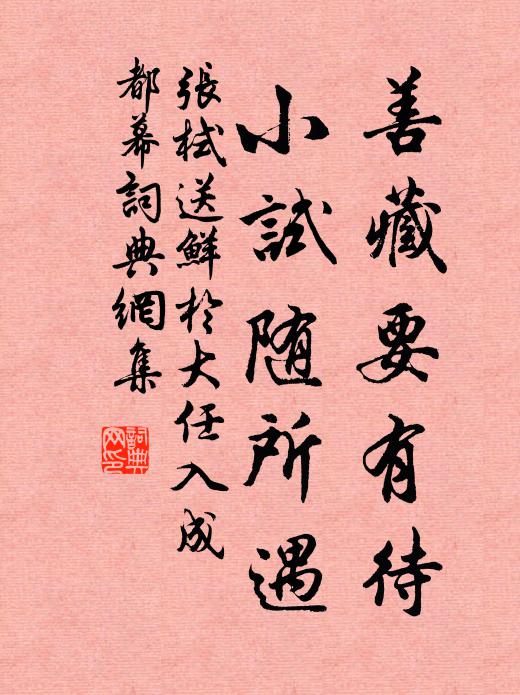 善藏要有待
小試随所遇
張栻送鮮於大任入成
都幕詞典網集
詞典
网印